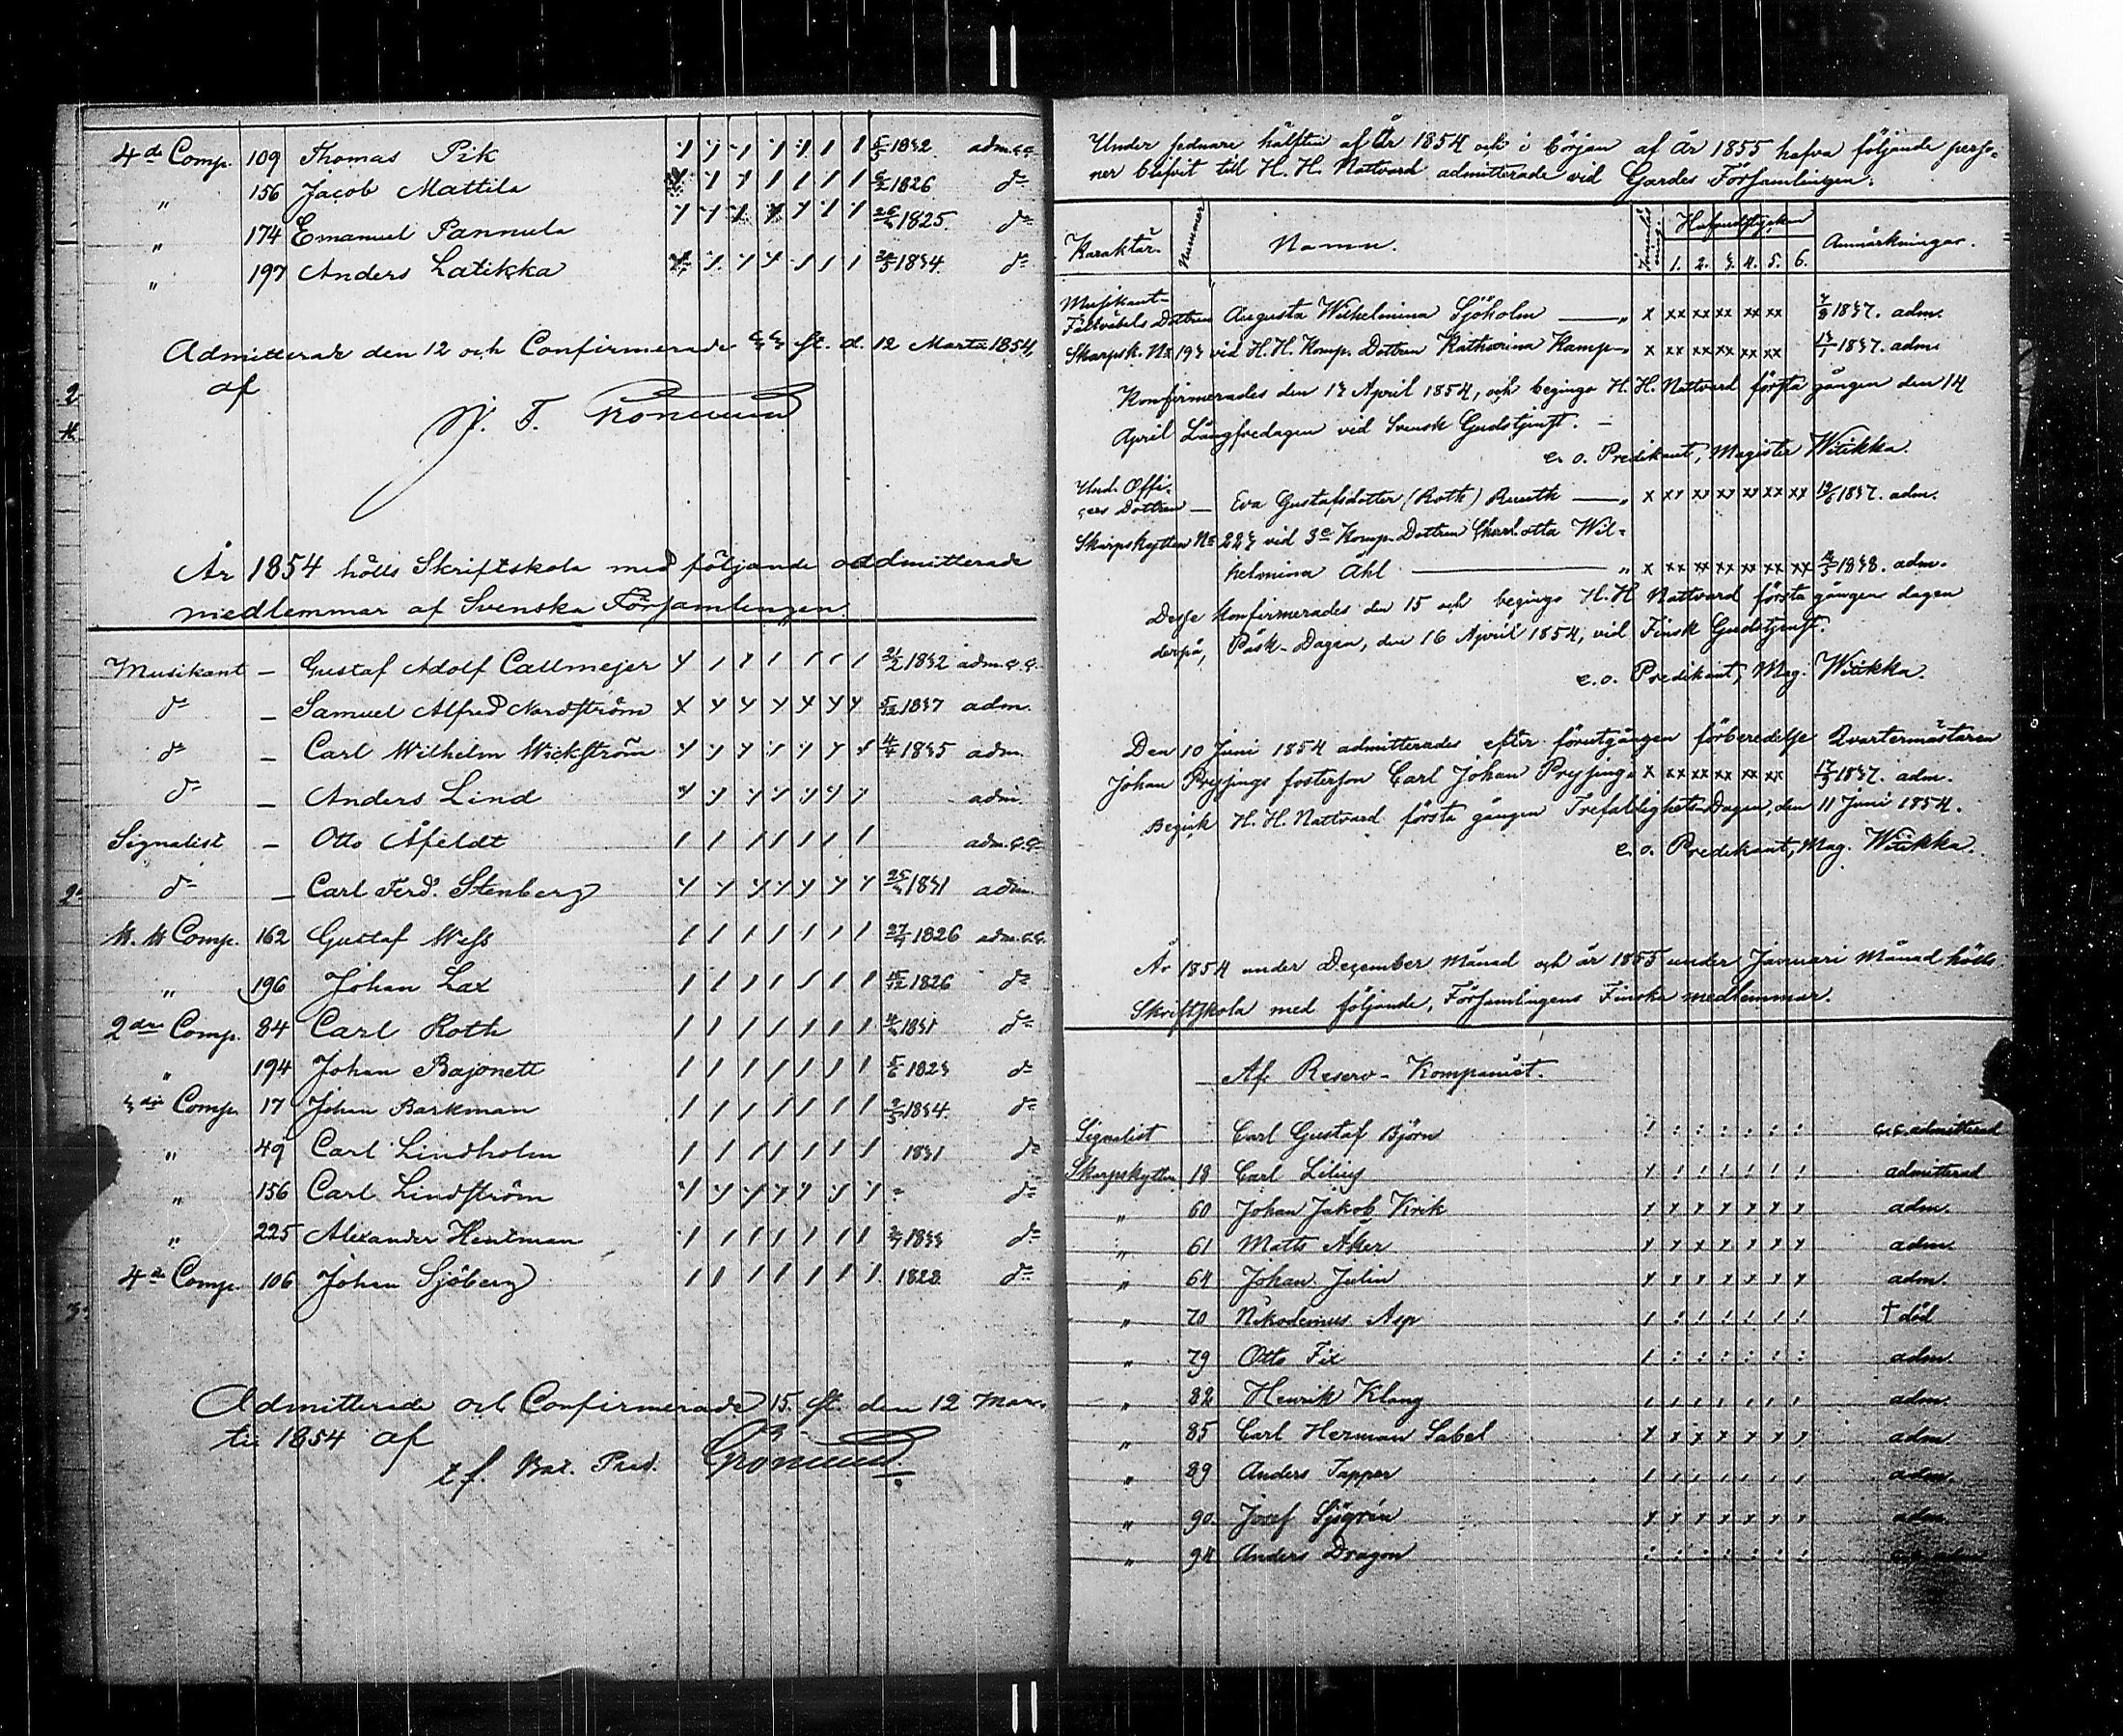 4de Comp. 109 Thomas Pik 1832. adm. c.c.
" 156 Jacob Mattila 1826 do
" 174 Emanuel Pannula 1825. do
" 197 Anders Latikka 1834. do
Admitterade den 12 och Confirmerade 33 st. d. 12 Martii 1854,
af
År 1854 hölls Skriftskola med följande addmitterade
medlemmar af Svenska Församlingen.
Musikant – Gustaf Adolf Callmejer 21/2 1832 adm. c.c.
do – Samuel Alfred Nordström 5/12 1837 adm.
do – Carl Wilhelm Wickström 4/4 1835 adm.
do – Anders Lind adm.
Signalist – Otto Åfeldt adm. c.c.
do – Carl Ferd. Stenberg 1831 adm.
Comp. 162 Gustaf 1826 adm. c.c.
" 196 Johan Lax 1826 do
2dra Comp. 84 Carl Roth 1831 do
" 194 Johan Bajonett 5/6 1823 do
3die Comp. 17 Johan Barkman 1834. do
" 49 Carl Lindholm 1831 do
" 156 Carl Lindström do
" 225 Alexander Hentman 1833 do
4de Comp. 106 Johan Sjöberg 1828. do
Admitterade och Confirmerade 15 st. den 12 Mar-
tii 1854 af
t.f. Bat. Pred. Grönlund
Under sednare hälften af År 1854 och i början af år 1855 hafva följande perso-
ner blifvit till H. H. Nattvard admitterade vid Gardes Församlingen.
Karaktär. Nummer Namn. Innanläsning. Hufvudstycken Anmärkningar.
1. 2. 3. 4. 5. 6.
Musikant-
Fältväbels Dottren Augusta Wilhelmina Sjöholm " x xx xx xx xx xx 1837. adm.
Skarpsk. No 193 vid H. H. Komp. Dottren Katharina Kamp " x xx xx xx xx xx 1837. adm.
Konfirmerades den 13 April 1854, och begingo H. H. Nattvard första gången den 14
April Långfredagen vid Svensk Gudstjenst. –
e. o. Predikant, Magister Witikka.
Und. Offi-
cers Dottren – Eva Gustafsdotter (Roth) Ruuth " x xx xx xx xx xx xx 1837. adm.
Skarpskytten No 223 vid 3e Komp. Dottren Charlotta Wil-
helmina Åhl " x xx xx xx xx xx xx 1838. adm.
Desse konfirmerades den 15 och begingo H. H. Nattvard första gången dagen
derpå, Påsk-Dagen, den 16 April 1854, vid Finsk Gudstjenst.
e. o. Predikant, Mag. Witikka.
Den 10 Juni 1854 admitterades efter föregången förberedelse Qvartermästaren
Johan Pryssings fosterson Carl Johan Pryssing. x xx xx xx xx xx 1837. adm.
Begick H. H. Nattvard första gången Trefaldighets-Dagen, den 11 Juni 1854.
e. o. Predikant, Mag. Witikka.
År 1854 under December Månad och år 1855 under Januari Månad hölls
Skriftskola med följande, Församlingens Finska medlemmar.
Af Reserv-Kompaniet.
Signalist Carl Gustaf Björn c.c. admitterad
Skarpskytten 18 Carl Lilius admitterad
" 60 Johan Jakob Kirik adm.
" 61 Matts Åker adm.
" 64 Johan Julin adm.
" 70 Nikodemus Asp † död
" 79 Otto Fix adm.
" 82 Henrik Klang adm.
" 85 Carl Herman Sabel adm.
" 89 Anders Tapper adm.
" 90. Josef Sjögrén adm.
" 94 Anders Dragon